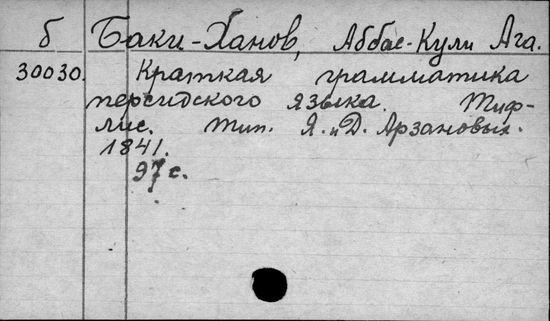 б Баки-Ханов, Аббас-Кули Ага.
30030. Краткая грамматика
персидского языка. Тиф-
лис. тип. Я. и Д. Арзановых.
1841.
97 с.